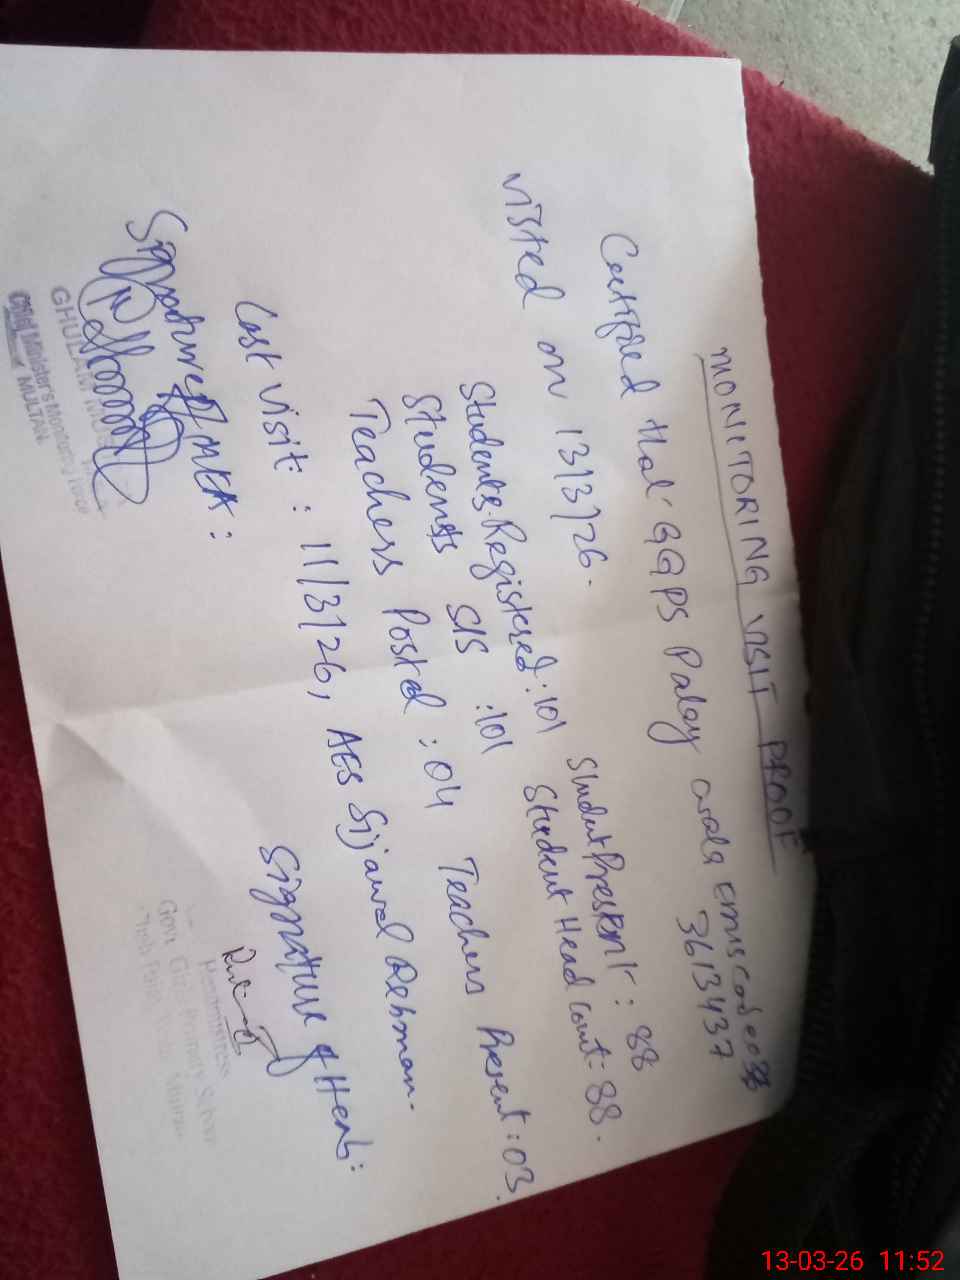 MONITORING VISIT PROOF
Certified that GGPS Palay wala emis code
3613437
visted on 13/3/26.
Student Present: 88
Students Registered: 101 Student Head count: 88.
Students SIS : 101
Teachers Posted : 04 Teachers Present: 03.
Last visit : 11/3/26, AES Sijawal Rehman.
Signature of MEA: Signature of Head:
GHULAM
Chief Minister's Monitoring Force
MULTAN
Headmistress
Govt. Girls Primary School
13-03-26 11:52